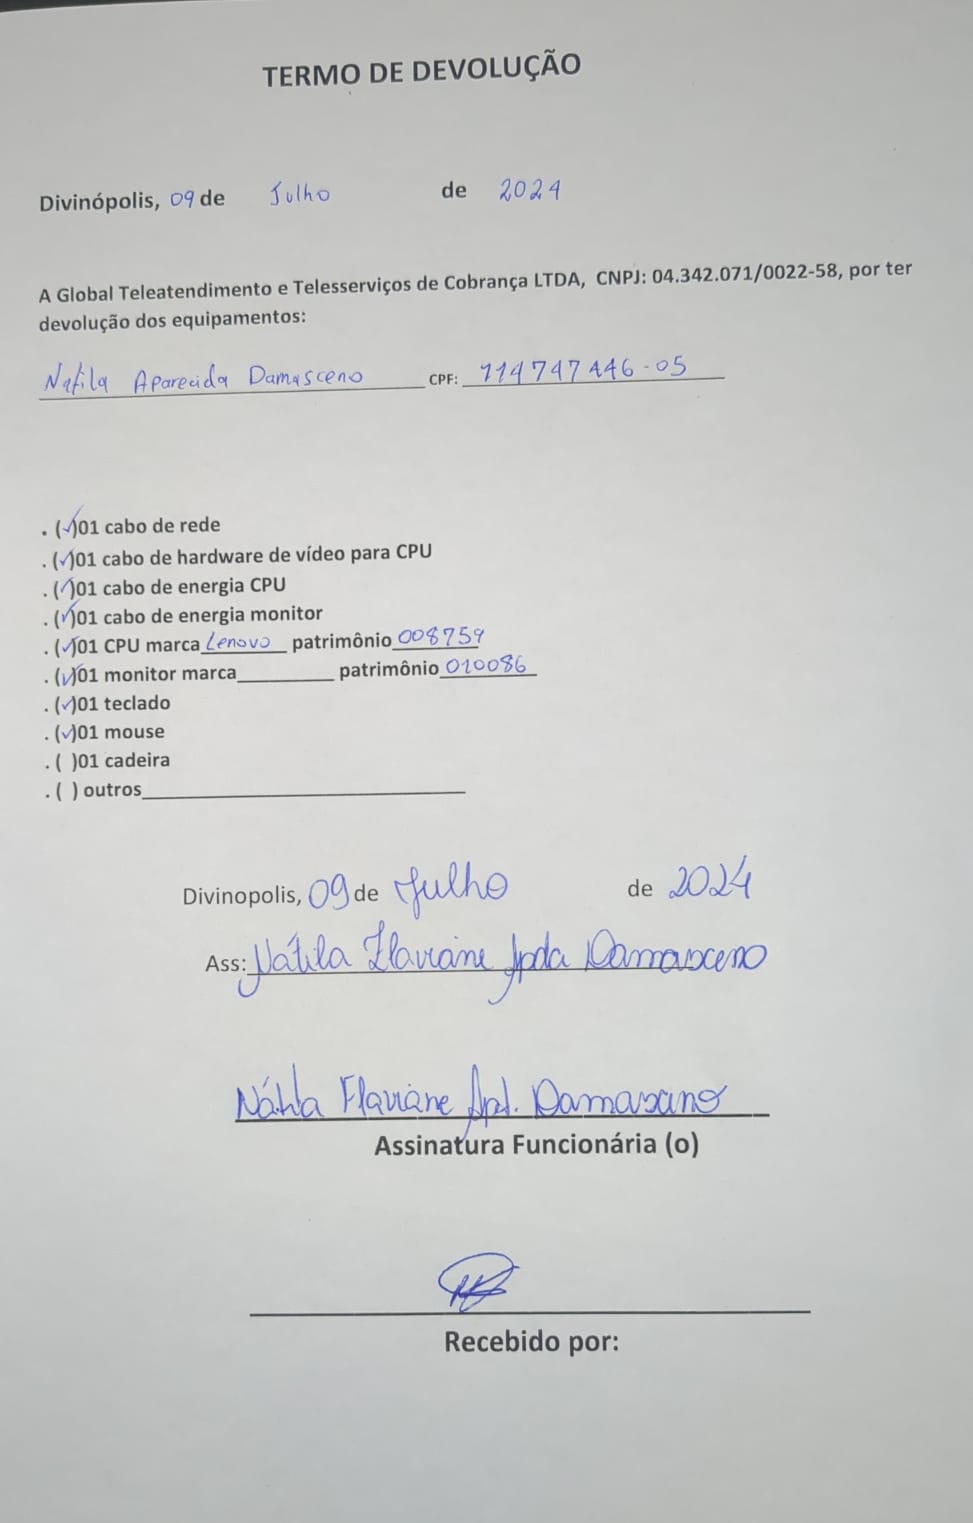 TERMO DE DEVOLUÇÃO
Divinópolis, 09 de Julho de 2024
A Global Teleatendimento e Telesserviços de Cobrança LTDA, CNPJ: 04.342.071/0022-58, por ter
devolução dos equipamentos:
Natila Aparecida Damasceno CPF: 114747446-05
. (✓)01 cabo de rede
. (✓)01 cabo de hardware de vídeo para CPU
. (✓)01 cabo de energia CPU
. (✓)01 cabo de energia monitor
. (✓)01 CPU marca Lenovo patrimônio 008759
. (✓)01 monitor marca__________ patrimônio 010086
. (✓)01 teclado
. (✓)01 mouse
. ( )01 cadeira
. ( ) outros________________________________
Divinopolis, 09 de Julho de 2024
Ass: Nátila Flaviane Apda Damasceno
Nátila Flaviane Apd. Damasceno
Assinatura Funcionária (o)
Recebido por: